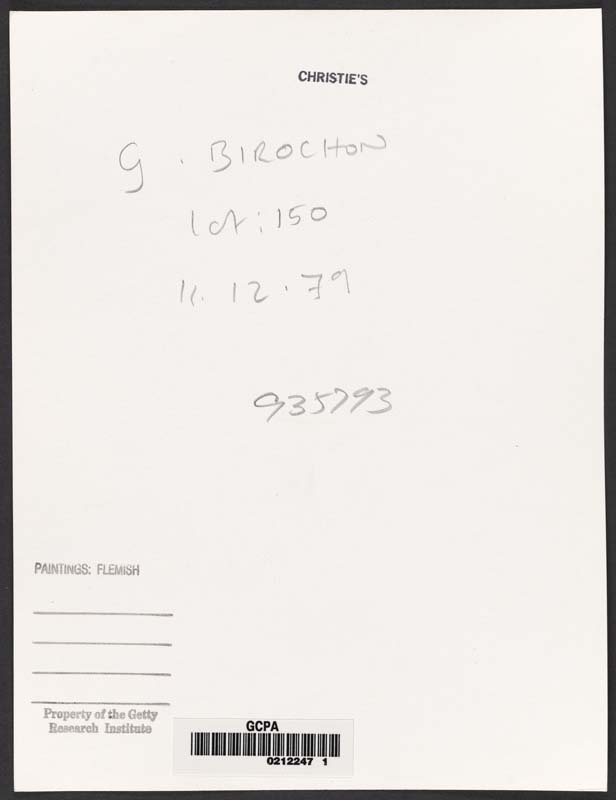 CHRISTIE'S
G. BIROCHON
lot: 150
11. 12. 79
935793
PAINTINGS: FLEMISH
Property of the Getty
Research Institute
GCPA
0212247 1